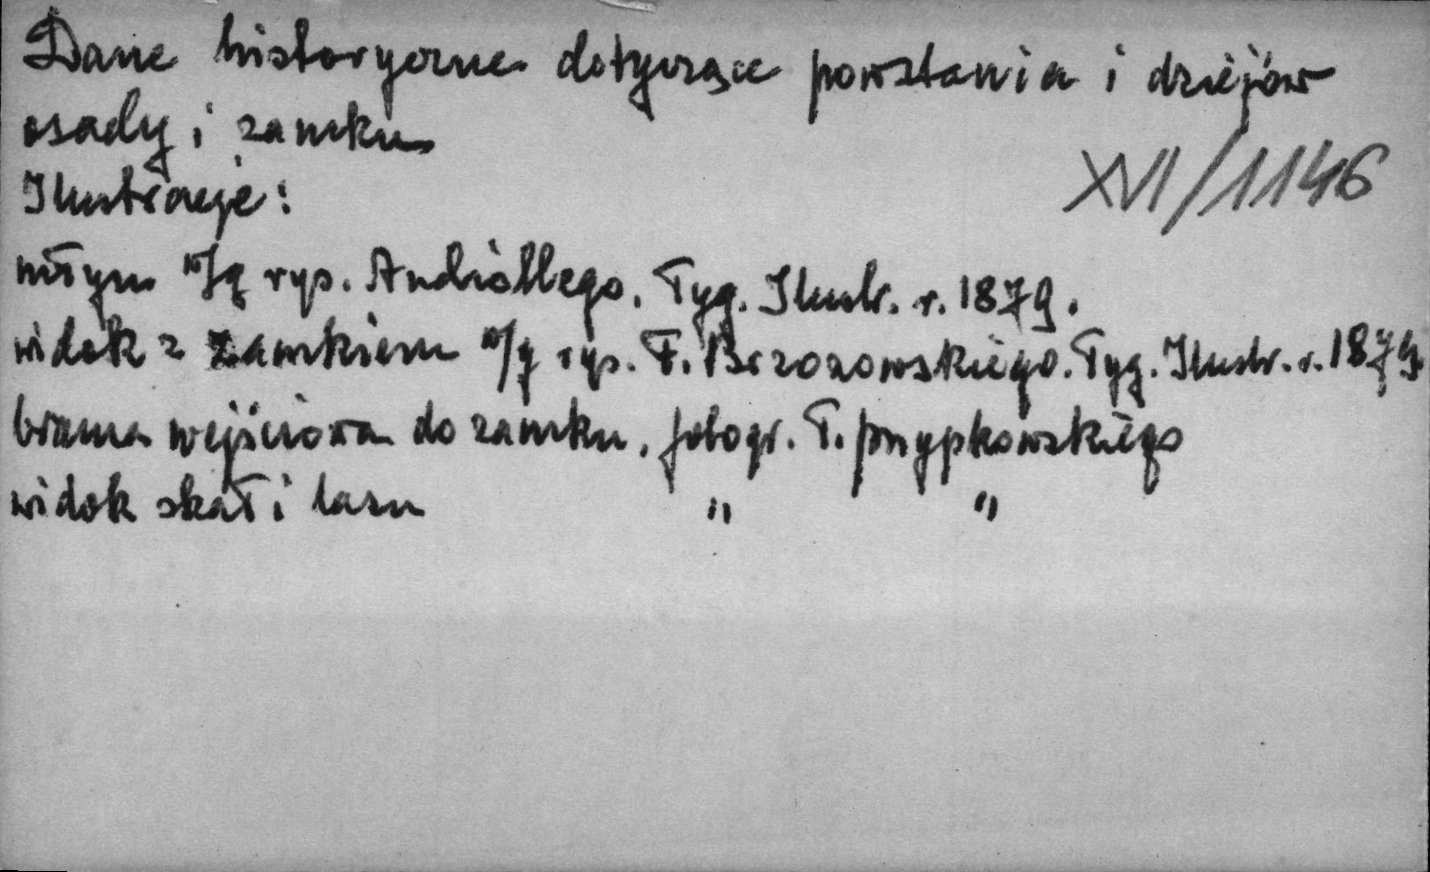 Dane historyczne dotyczące powstania i dziejów
osady i zamku
XVI/1146
Ilustracje:
młyn w/g rys. Andriollego. Tyg. Ilustr. r. 1879.
widok z zamkiem w/g rys. F. Brzozowskiego. Tyg. Ilustr. r. 1879.
brama wejściowa do zamku, fotogr. T. Przypkowskiego
widok skał i lasu " "